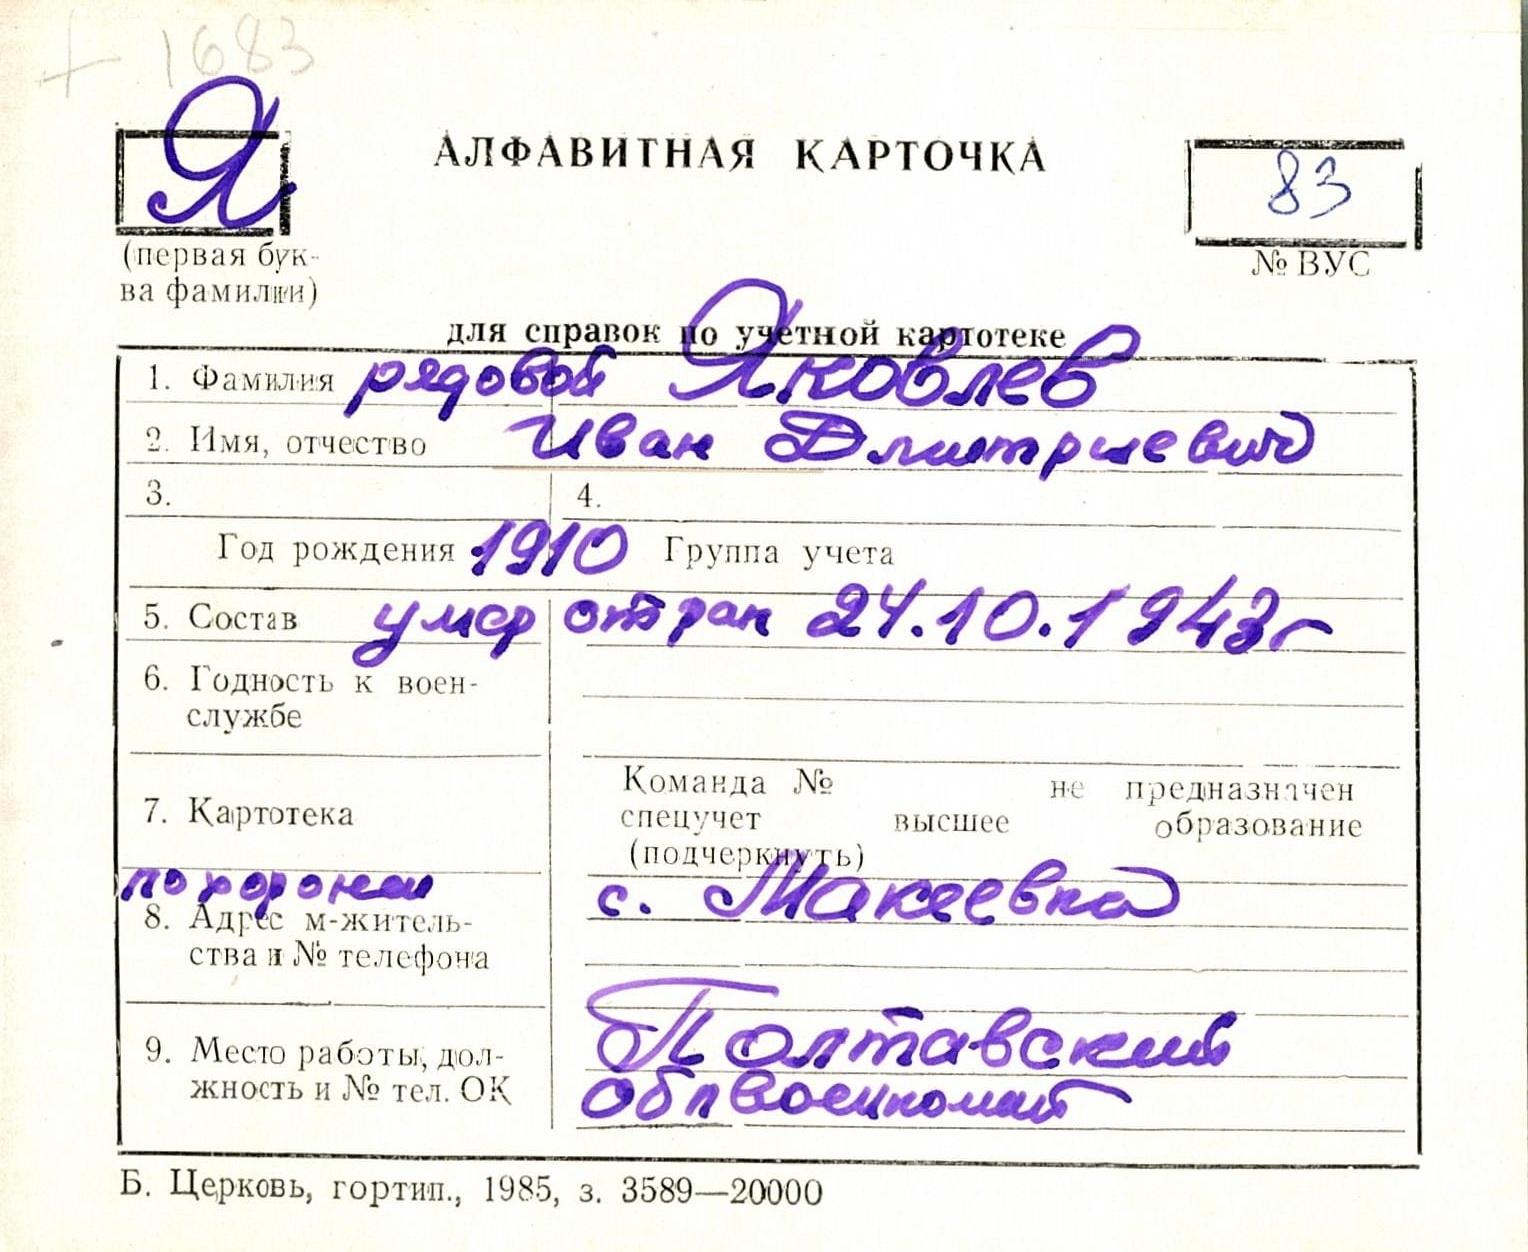 + 1683
Я
АЛФАВИТНАЯ КАРТОЧКА
83
(первая бук-
ва фамилии)
№ ВУС
для справок по учетной картотеке
1. Фамилия рядовой Яковлев
2. Имя, отчество Иван Дмитриевич
3. 4.
Год рождения 1910 Группа учета
5. Состав умер от ран 24.10.1943г
6. Годность к воен-
службе
7. Картотека
Команда № не предназначен
спецучет высшее образование
(подчеркнуть)
похоронен с. Макеевка
8. Адрес м-житель-
ства и № телефона
9. Место работы, дол-
жность и № тел. ОК
Полтавский
облвоенкомат
Б. Церковь, гортип., 1985, з. 3589—20000